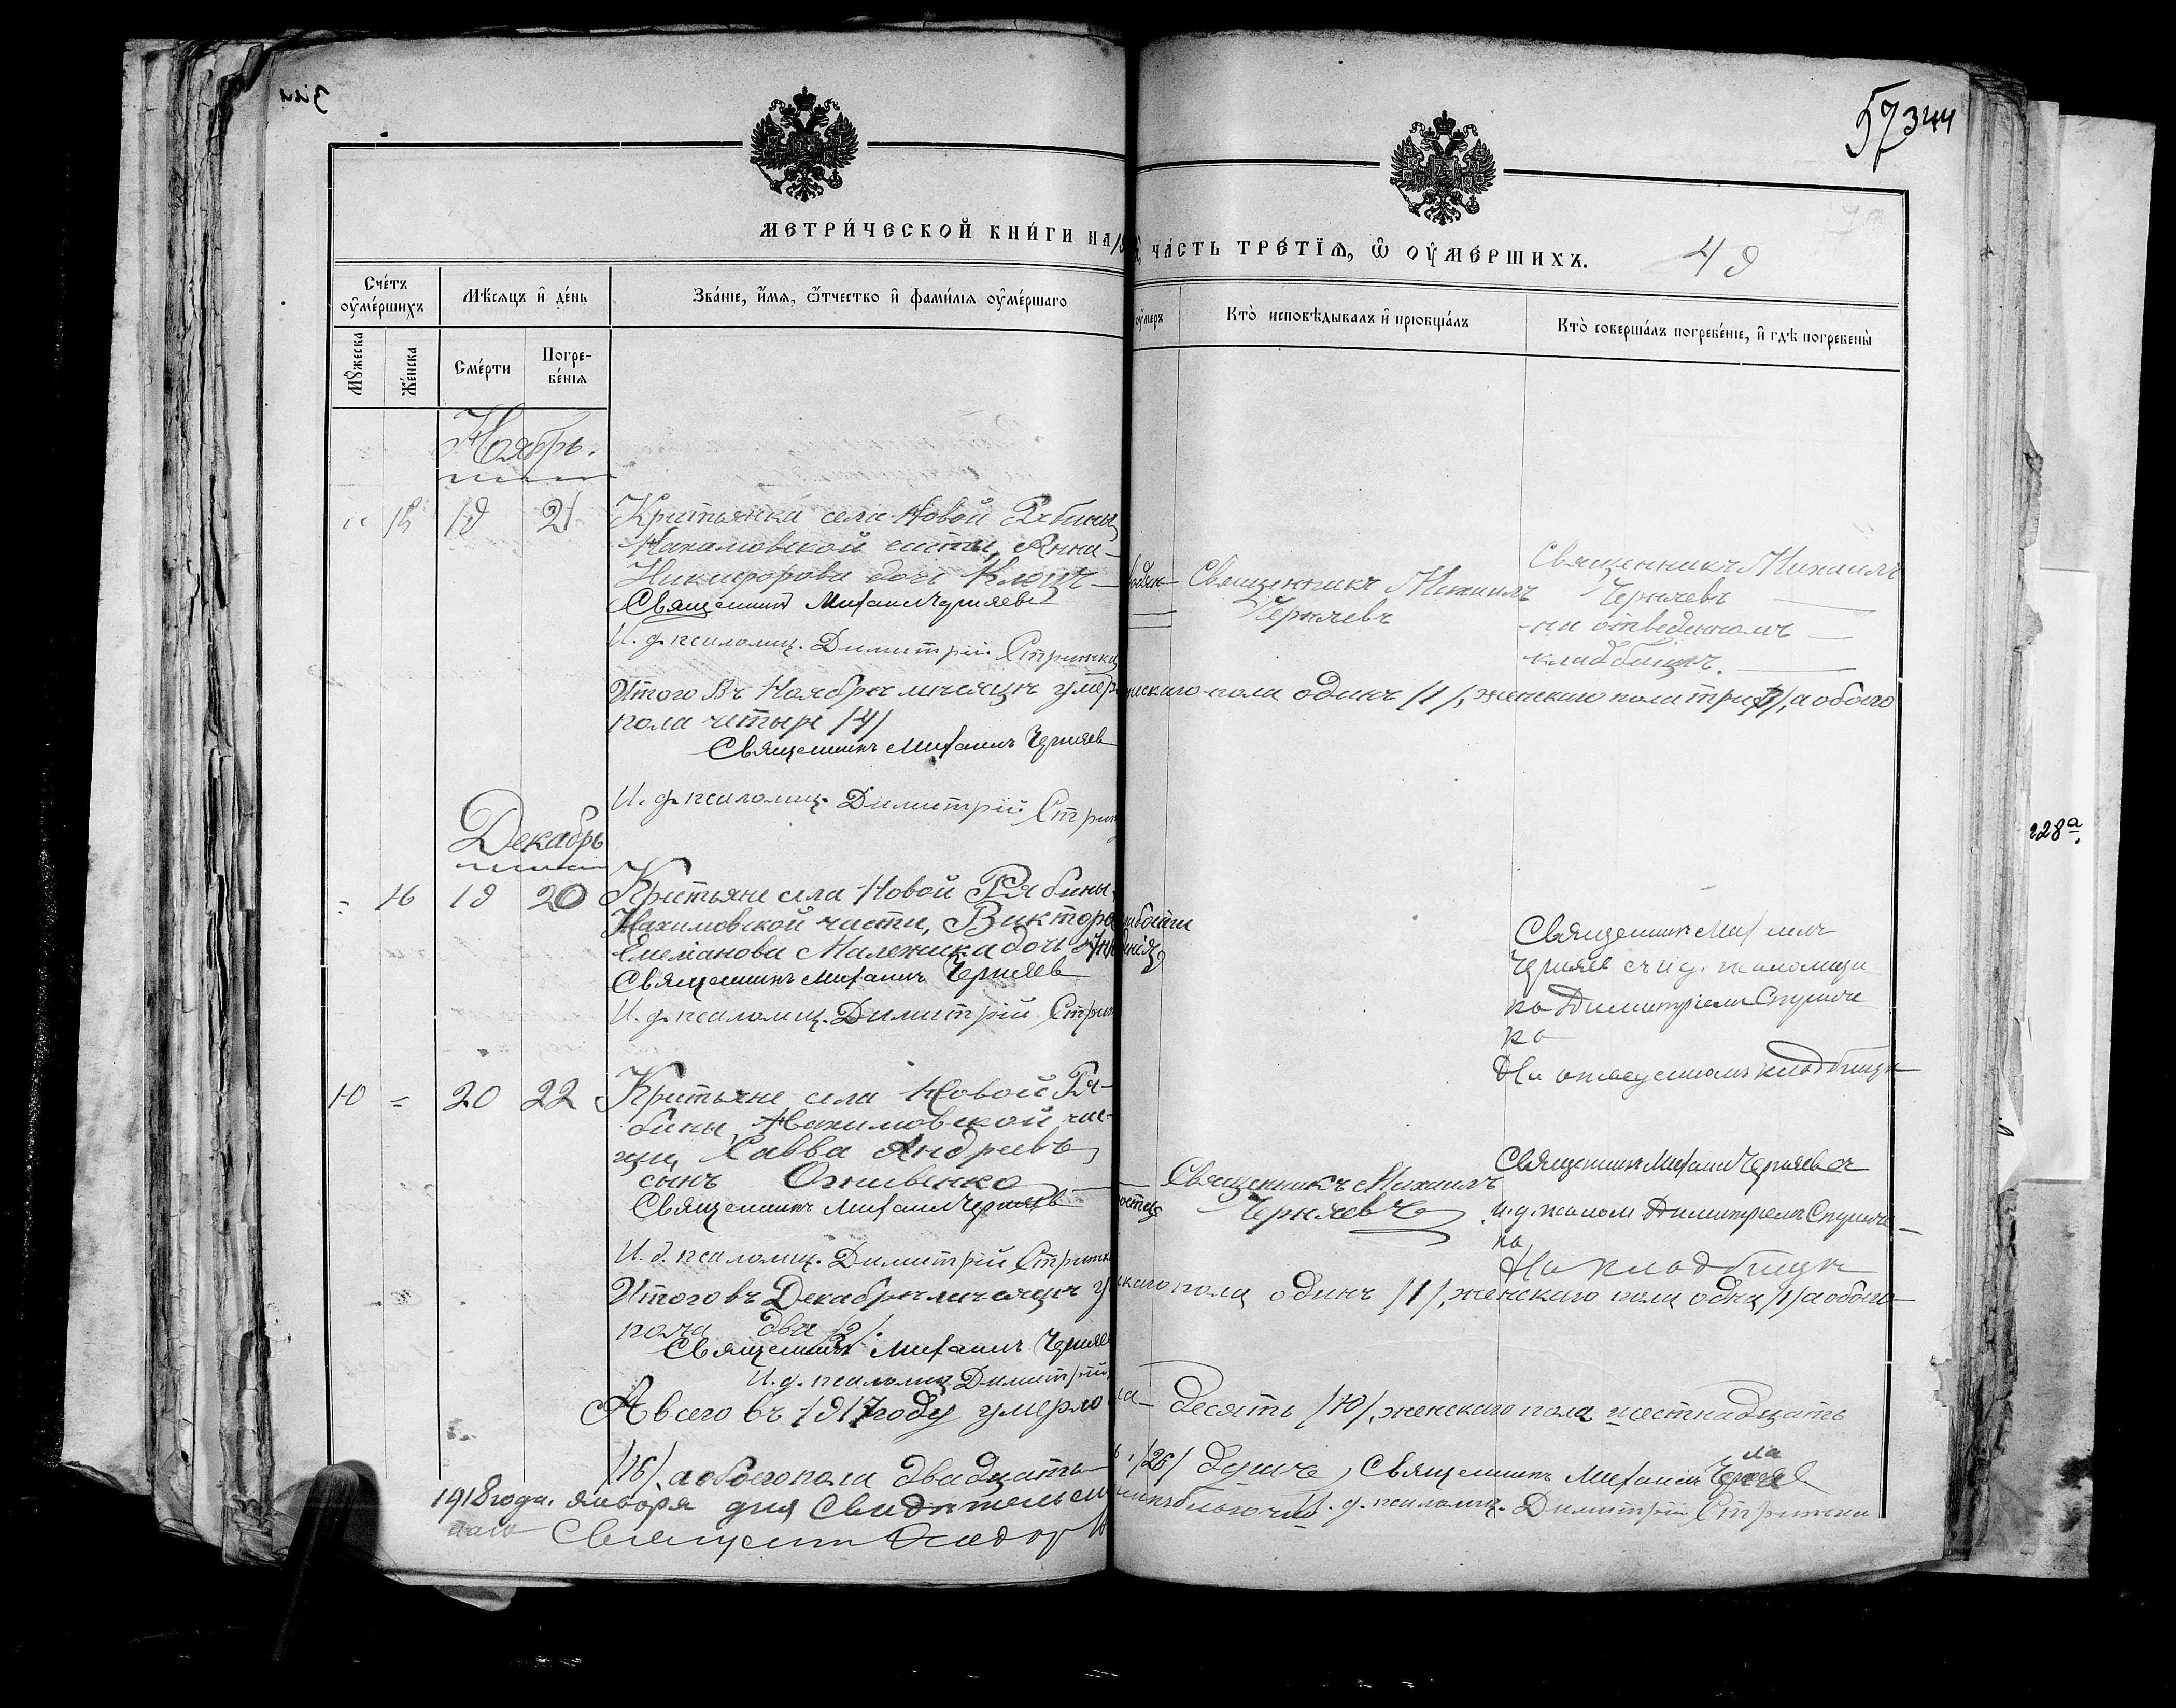 57 344
МЕТРИ́ЧЕСКОЙ КНИ́ГИ НА
ЧА́СТЬ ТРЕ́ТІѦ, Ѽ ОУМЕ́РШИХЪ.
49
Сче́тъ оуме́ршихъ
Мѣ́сяцъ и де́нь
Зва́ніе, и́мя, ѻ́тчество и фами́лія оуме́ршаго
оумеръ
Кто̀ исповѣ́дывалъ и пріобща́лъ
Кто̀ соверша́лъ погребе́ніе, и гдѣ̀ погребены̀
Мꙋжеска
Же́нска
Сме́рти
Погре-
бе́нія
Ноябрь.
" 15 19 21 Крестьянка села Новой Рябины
Нахимовской части, Анна
Никифорова дочь Клоцъ
Священникъ Михаилъ Черняевъ
И. д. псаломщ. Димитрій
Священникъ Михаилъ
Черняевъ
Священникъ Михаилъ
Черняевъ
на отведенномъ
кладбищѣ.
Итого въ Ноябрѣ мѣсяцѣ умер
скаго пола одинъ /1/, женскаго пола три /3/, а обоего
пола четыре /4/
Священникъ Михаилъ Черняев
И. д. псаломщ. Димитрій
Декабрь
= 16 19 20 Крестьяне села Новой Рябины
Нахимовской части, Виктора
Емеліанова Малежика дочь
Священникъ Михаилъ Черняев
И. д. псаломщ. Димитрій
Священникъ Михаилъ
Черняев съ и. д. псаломщи
ка Димитріем
ка
На отведенномъ кладбищѣ
10 = 20 22 Крестьяне села Новой Ря-
бины, Нахимовской час-
ти, Савва Андреевъ
сынъ
Священникъ Михаилъ Черняев
И. д. псаломщ. Димитрій
Священникъ Михаилъ
Черняевъ
Священникъ Михаил Черняев съ
и. д. псалом Димитріемъ
ка
На кладбищѣ
Итого въ Декабрѣ мѣсяцѣ у
скаго пола одинъ /1/, женскаго пола одна /1/ а обоего
пола два /2/.
Священникъ Михаилъ Черняев
И. д. псаломщ. Димитрій
А всего въ 1917 году умерло
десять /10/, женскаго пола шестнадцать
/16/, а обоего пола двадцать
/26/ душъ, Священникъ Михаилъ Черняев
И. д. псаломщ. Димитрій
1918 года. января дня
Священ
228а.